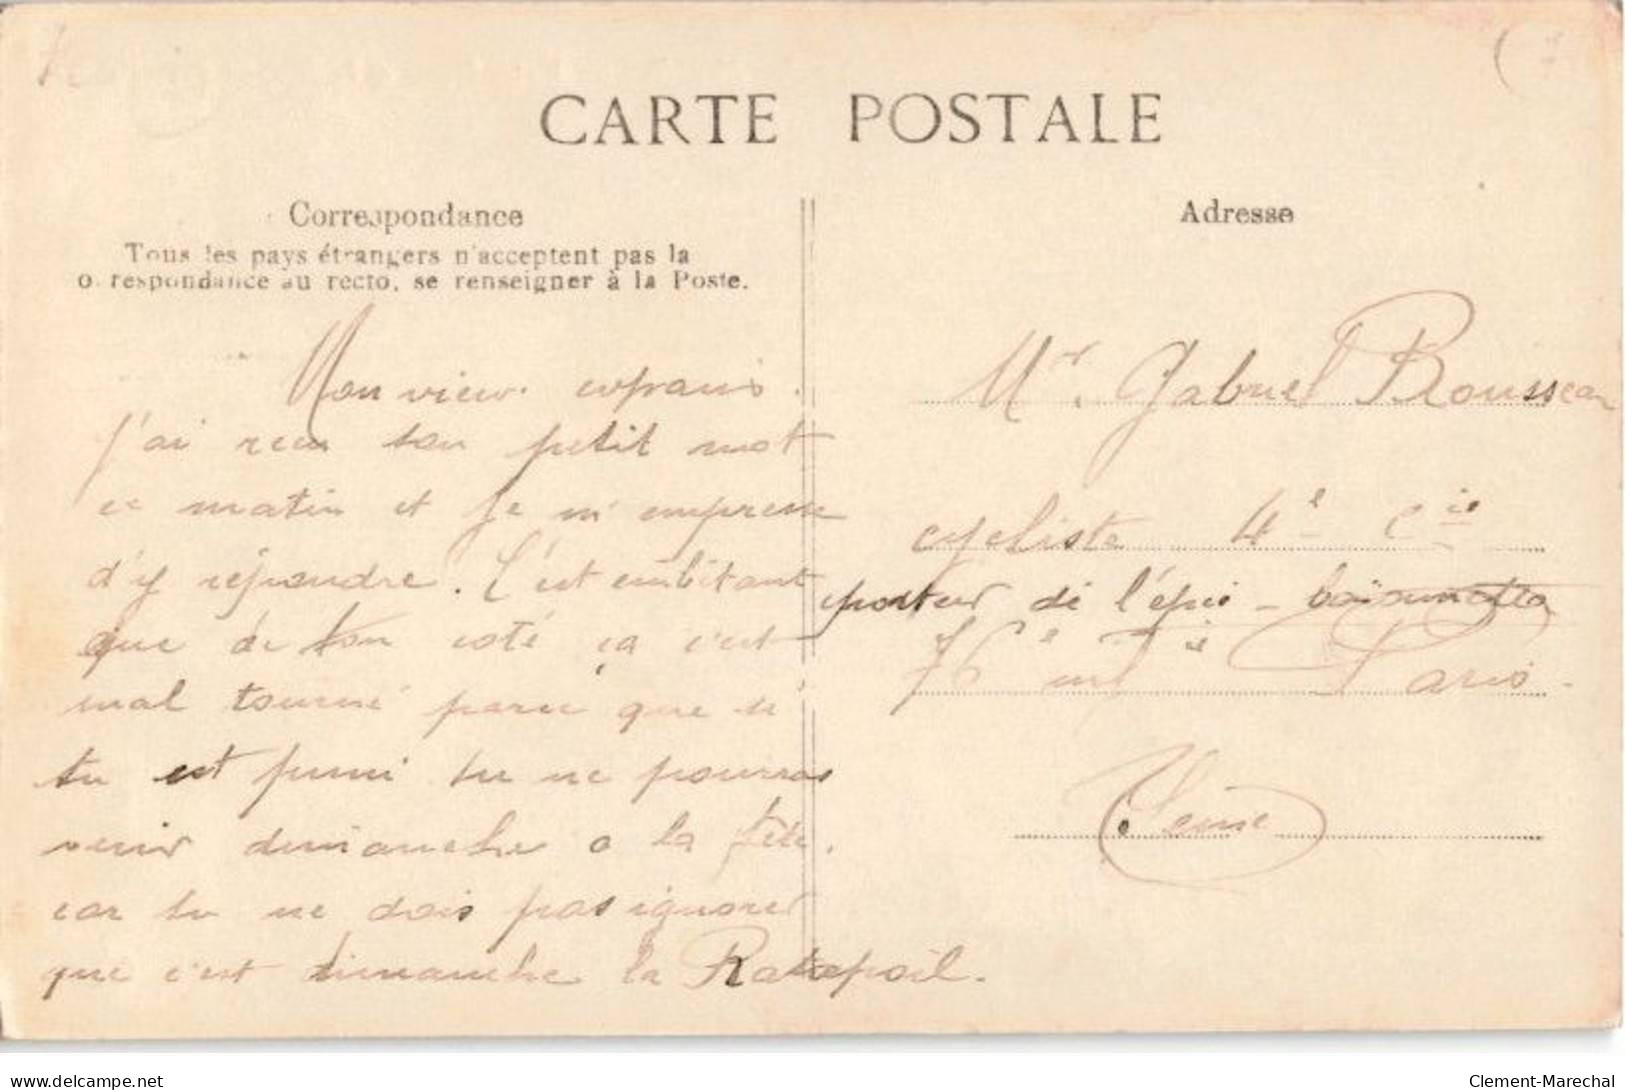 CARTE POSTALE
Correspondance
Tous les pays étrangers n'acceptent pas la
orrespondance au recto, se renseigner à la Poste.
Mon vieux coprans.
J'ai recu ton petit mot
ce matin et je m'empresse
d'y répondre. C'est embêtant
que de ton coté ça c'est
mal tourné parce que si
tu est puni tu ne pourras
venir dimanche a la fête.
car tu ne dois pas ignorer
que c'est dimanche la Ratapoil.
Adresse
Mr. Gabriel Rousseau
cycliste 4e Cie
porteur de l'épée - baïonnette
76e Paris.
Seine
Clement-Marechal
www.delcampe.net